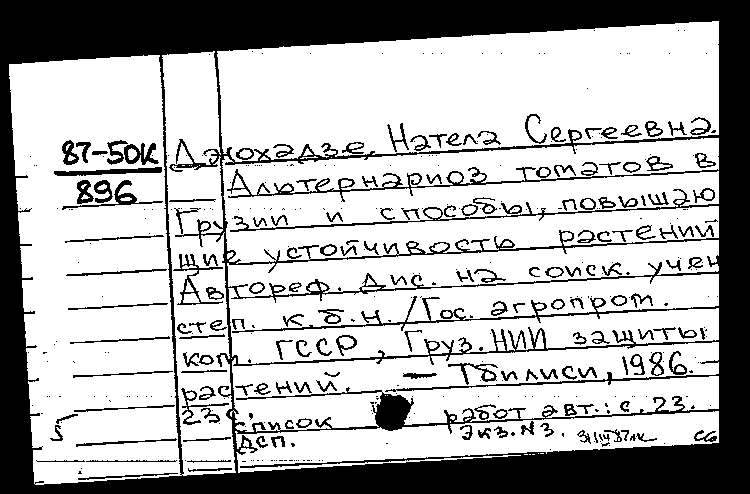 87-50К Джохадзе, Натела Сергеевна.
896 Альтернариоз томатов в
Грузии и способы, повышаю
щие устойчивость растений
Автореф. дис. на соиск. учен
степ. к.б.н. /Гос. агропром.
ком. ГССР, Груз. НИИ защиты
растений. — Тбилиси, 1986. —
23 с.
список работ авт.: с. 23.
ДСП. Экз. №3.